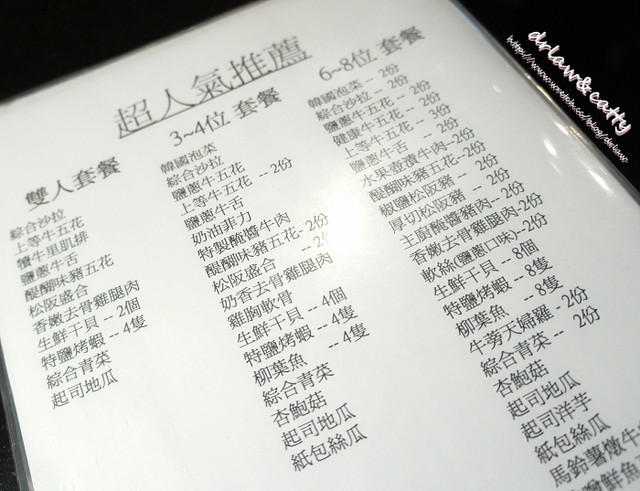 drlaw&catty
超人氣推薦
雙人套餐
綜合沙拉
上等牛五花
犢牛里肌排
鹽蔥牛舌
醍醐味豬五花
松阪盛合
香嫩去骨雞腿肉
生鮮干貝 -- 2個
特鹽烤蝦 -- 4隻
綜合青菜
起司地瓜
3~4位 套餐
韓國泡菜
綜合沙拉
鹽蔥牛五花
上等牛五花 -- 2份
鹽蔥牛舌
奶油菲力
特製醃醬牛肉
醍醐味豬五花-- 2份
松阪盛合 -- 2份
奶香去骨雞腿肉
雞胸軟骨
生鮮干貝 -- 4個
特鹽烤蝦 -- 4隻
柳葉魚 -- 4隻
綜合青菜
杏鮑菇
起司地瓜
紙包絲瓜
6~8位 套餐
韓國泡菜 -- 2份
綜合沙拉 -- 2份
鹽蔥牛五花 -- 2份
健康牛五花 -- 2份
上等牛五花 -- 3份
鹽蔥牛舌 -- 2份
水果壺漬牛肉--2份
醍醐味豬五花--2份
椒鹽松阪豬 -- 2份
厚切松阪豬 -- 2份
主廚醃醬豬肉--2份
香嫩去骨雞腿肉 2份
軟絲(鹽蔥口味)--2份
生鮮干貝 -- 8個
特鹽烤蝦 -- 8隻
柳葉魚 -- 8隻
牛旁天婦羅 -- 2份
綜合青菜 -- 2份
杏鮑菇
起司地瓜
起司洋芋
紙包絲瓜
馬鈴薯燉牛